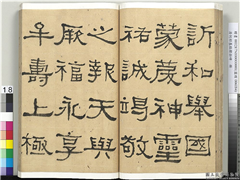 訢和舉國
蒙慶神靈
祐誠竭敬
之報天與
厥福永享
牟壽上極
18